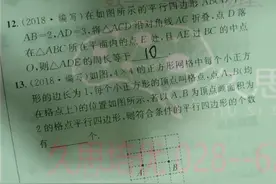 12.(2018·偏写)在如图所示的平行四边形ABCD中,
AB=2,AD=3,将△ACD沿对角线AC折叠,点D落
在△ABC所在平面内的点E处,且AE过BC的中点
O,则△ADE的周长等于 10
13.(2018·偏写)如图,4×4的正方形网格中每个小正方
形的边长为1,每个小正方形的顶点叫格点,点A、B均
在格点上)的位置如图所示,若以A、B为顶点画面积为
2的格点平行四边形,则符合条件的平行四边形的个数
有 个.
A B